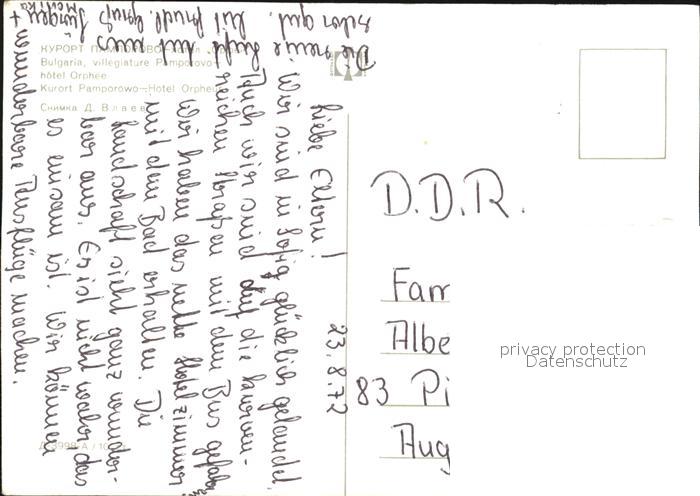 КУРОРТ ПАМПОРОВО—
Bulgaria, villegiature Pamporovo—
hôtel Orphée
Kurort Pamporowo—Hotel Orpheus
Снимка Д. Влаев
Liebe Eltern!
23.8.72
Wir sind in Sofia glücklich gelandet.
Auch wir sind auf die kurven-
reichen Straßen mit dem Bus gefahren
Wir haben das nette Hotelzimmer
mit dem Bad erhalten. Die
Landschaft sieht ganz wunder-
bar aus. Es ist nicht wahr das
es einsam ist. Wir können
wunderbare Ausflüge machen.
Die Luft tut uns
schon gut. Mit freudl. Gruß Jürgen +
Monika
D.D.R.
Fam
Albe
83 Pi
Aug
privacy protection
Datenschutz